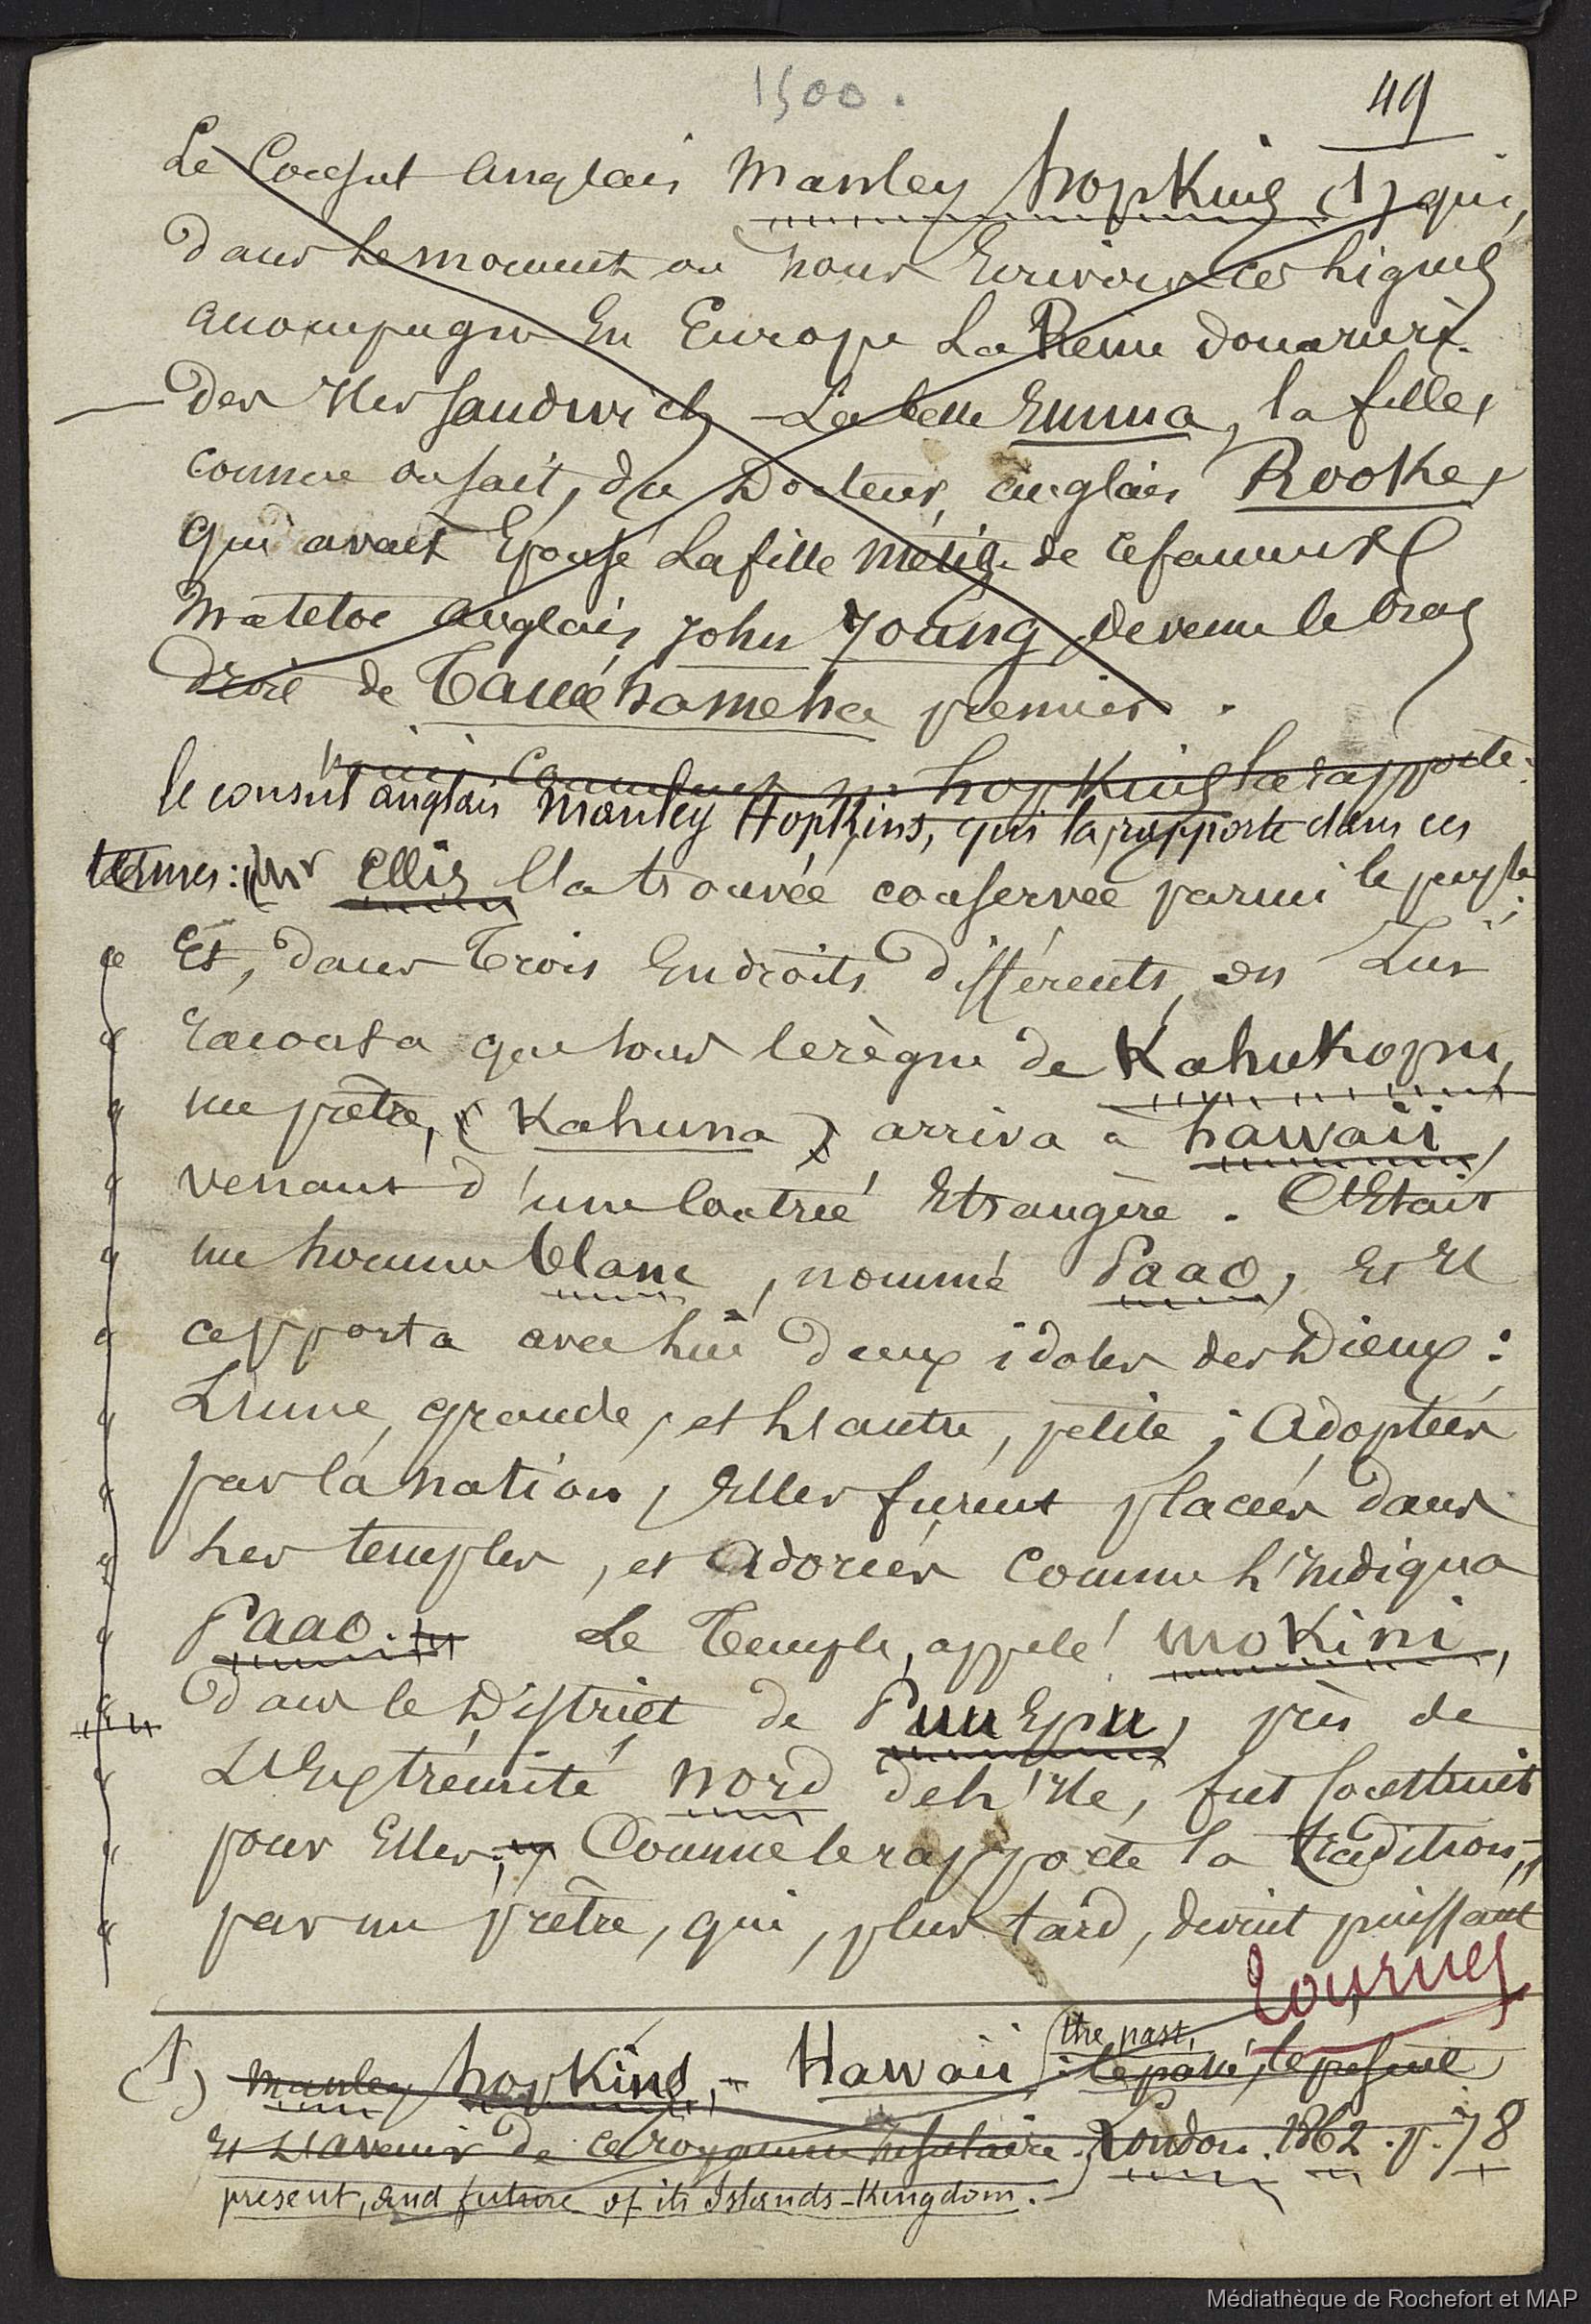 1500.
49
Le Consul anglais Manley hopkins (1) qui,
dans le moment ou nous Ecrivons ces lignes
accompagne En Europe La Reine douairière
— des Iles Sandwich — La belle Emma, la fille,
comme on sait, du Docteur anglais Rooke,
qui avait Epousé La fille métis de ce fameux
matelot anglais John Young, devenu le bras
droit de Taméhameha premier.
voici comment Mr hopkins la rapporte:
le consul anglais Manley Hopkins, qui la rapporte dans ces
termes: « Mr Ellis l'a trouvée conservée parmi le peuple;
« Et, dans Trois Endroits différents, on Lui
« raconta que sous le règne de Kahukopu,
« un prêtre, (Kahuna) arriva à hawaii,
« venant d'une Contrée Etrangère. C'Etait
« un homme blanc, nommé Paao, Et Il
« apporta avec lui deux idoles des Dieux:
« L'une, grande, et L'autre, petite; Adoptées
« par la nation, Elles furent placées dans
« les temples, et Adorées Comme l'Indiqua
« Paao. Le Temple, appelé mokini,
« dans le District de PuuEpu, près de
« L'Extrémité nord de l'Ile, fut Construit
« pour Elles; Comme le rapporte la tradition,
« par un prêtre, qui, plus tard, devint puissant
tournez
(1) Manley hopkins, - Hawaii : the past,
le passé, le présent
Et L'avenir de ce royaume Insulaire. London. 1862. p. 78
present, and future of its Islands-Kingdom.
Médiathèque de Rochefort et MAP